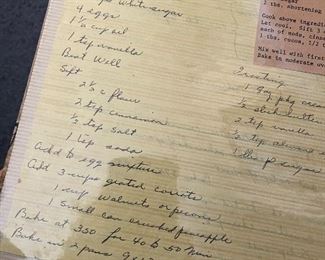 White sugar
4 eggs
1 1/2 cup oil
1 tsp vanilla
Beat Well
Sift
2 1/2 c flour
2 tsp cinnamon
1/2 tsp salt
1 tsp soda
Add to egg mixture
Add 3 cups grated carrots
1 cup walnuts or pecans
1 small can crushed pineapple
Bake at 350 for 40 to 50 min
Bake in 2 pans
Frosting
1 8oz pkg cream
1/2 stick butter
2 tsp vanilla
1 lb p sugar
sugar
1 tbs. shortening
Cook above ingred
Let cool. Sift 3
each of soda, cinna
1 tbs. cocoa, 1/2
Mix well with first
Bake in moderate ov